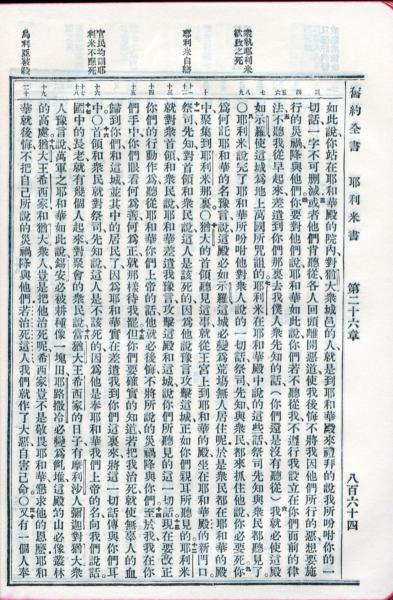 舊約全書 耶利米書 第二十六章 八百六十四
如此說你站在耶和華殿的院內對猶大衆城邑的人就是到耶和華殿來禮拜的說我所吩咐你的一
切話一字不可刪減或者他們肯聽從各人回頭離開惡道使我後悔不將我因他們所行的惡想要施
行的災禍降與他們你要對他們說耶和華如此說你們若不聽從我不遵行我設立在你們面前的律
法不聽我從早起來差遣到你們那裏去我僕人衆先知的話（你們還是沒有聽從）我就必使這殿
如示羅使這城爲地上萬國所咒詛的耶利米在耶和華殿中說的這些話祭司先知與衆民都聽見了
○耶利米說完了耶和華所吩咐他對衆人說的一切話祭司先知與衆民都來抓住他說你必要死你
爲何託耶和華的名豫言說這殿必如示羅這城必變爲荒塲無人居住呢於是衆民都在耶和華的殿
中聚集到耶利米那裏○猶大的首領聽見這事就從王宮上到耶和華的殿坐在耶和華殿的新門口
祭司先知對首領和衆民說這人是該死的因爲他說豫言攻擊這城正如你們親耳所聽見的耶利米
就對衆首領和衆民說耶和華差遣我豫言攻擊這殿和這城說你們所聽見的這一切話現在要改正
你們的行動作爲聽從耶和華你們上帝的話他就必後悔不將所說的災禍降與你們至於我我在你
們手中你們眼看何爲善何爲正就那樣待我罷但你們要確實的知道若把我治死就使無辜人的血
歸到你們和這城並其中的居民了因爲耶和華實在差遣我到你們這裏來將這一切話傳與你們耳
中○首領和衆民就對祭司先知說這人是不該死的因爲他是奉耶和華我們上帝的名向我們說話
國中的長老就有幾個人起來對聚會的衆民說當猶大王希西家的日子有摩利沙人彌迦對猶大衆
人豫言說萬軍之耶和華如此說錫安必被耕種像一塊田耶路撒冷必變爲亂堆這殿的山必像叢林
的高處猶大王希西家和猶大衆人豈是把他治死呢希西家豈不是敬畏耶和華懇求他的恩麼耶和
華就後悔不把自己所說的災禍降與他們若治死這人我們就作了大惡自害己命○又有一個人奉
衆執耶利米
欲致之死
耶利米自辯
官民均謂耶
利米不應死
烏利亞被殺